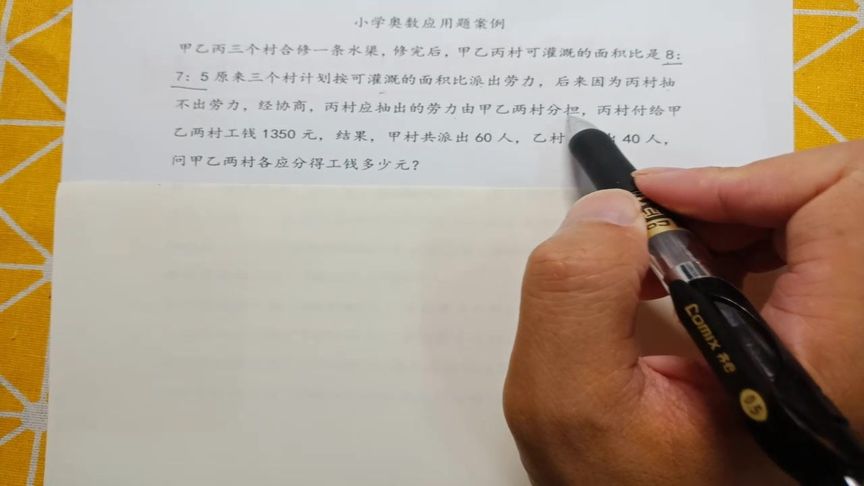 小学奥数应用题案例
甲乙丙三个村合修一条水渠，修完后，甲乙丙村可灌溉的面积比是 8：
7：5 原来三个村计划按可灌溉的面积比派出劳力，后来因为丙村抽
不出劳力，经协商，丙村应抽出的劳力由甲乙两村分担，丙村付给甲
乙两村工钱 1350 元，结果，甲村共派出 60 人，乙村 出 40 人，
问甲乙两村各应分得工钱多少元？
Comix 齐心
0.5